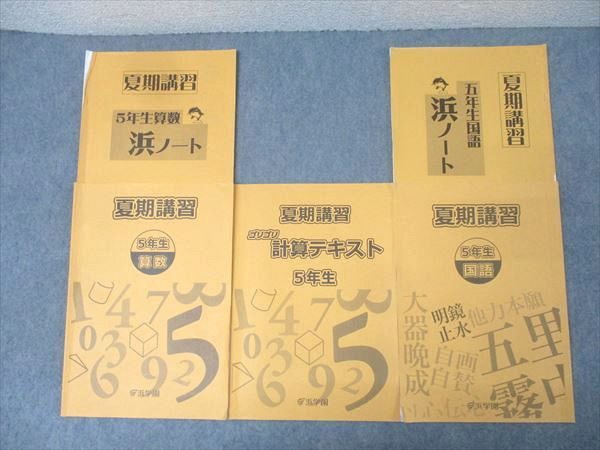 夏期講習
5年生算数
浜ノート
夏期講習
五年生国語
浜ノート
夏期講習
5年生
算数
1 4 7 3
0 3 5
6 9 2
浜学園
夏期講習
ゴリゴリ
計算テキスト
5年生
1 4 7 3
0 3 5
6 9 2
浜学園
夏期講習
5年生
国語
大器晩成
明鏡止水
他力本願
自画自賛
五里霧中
以心伝心
浜学園